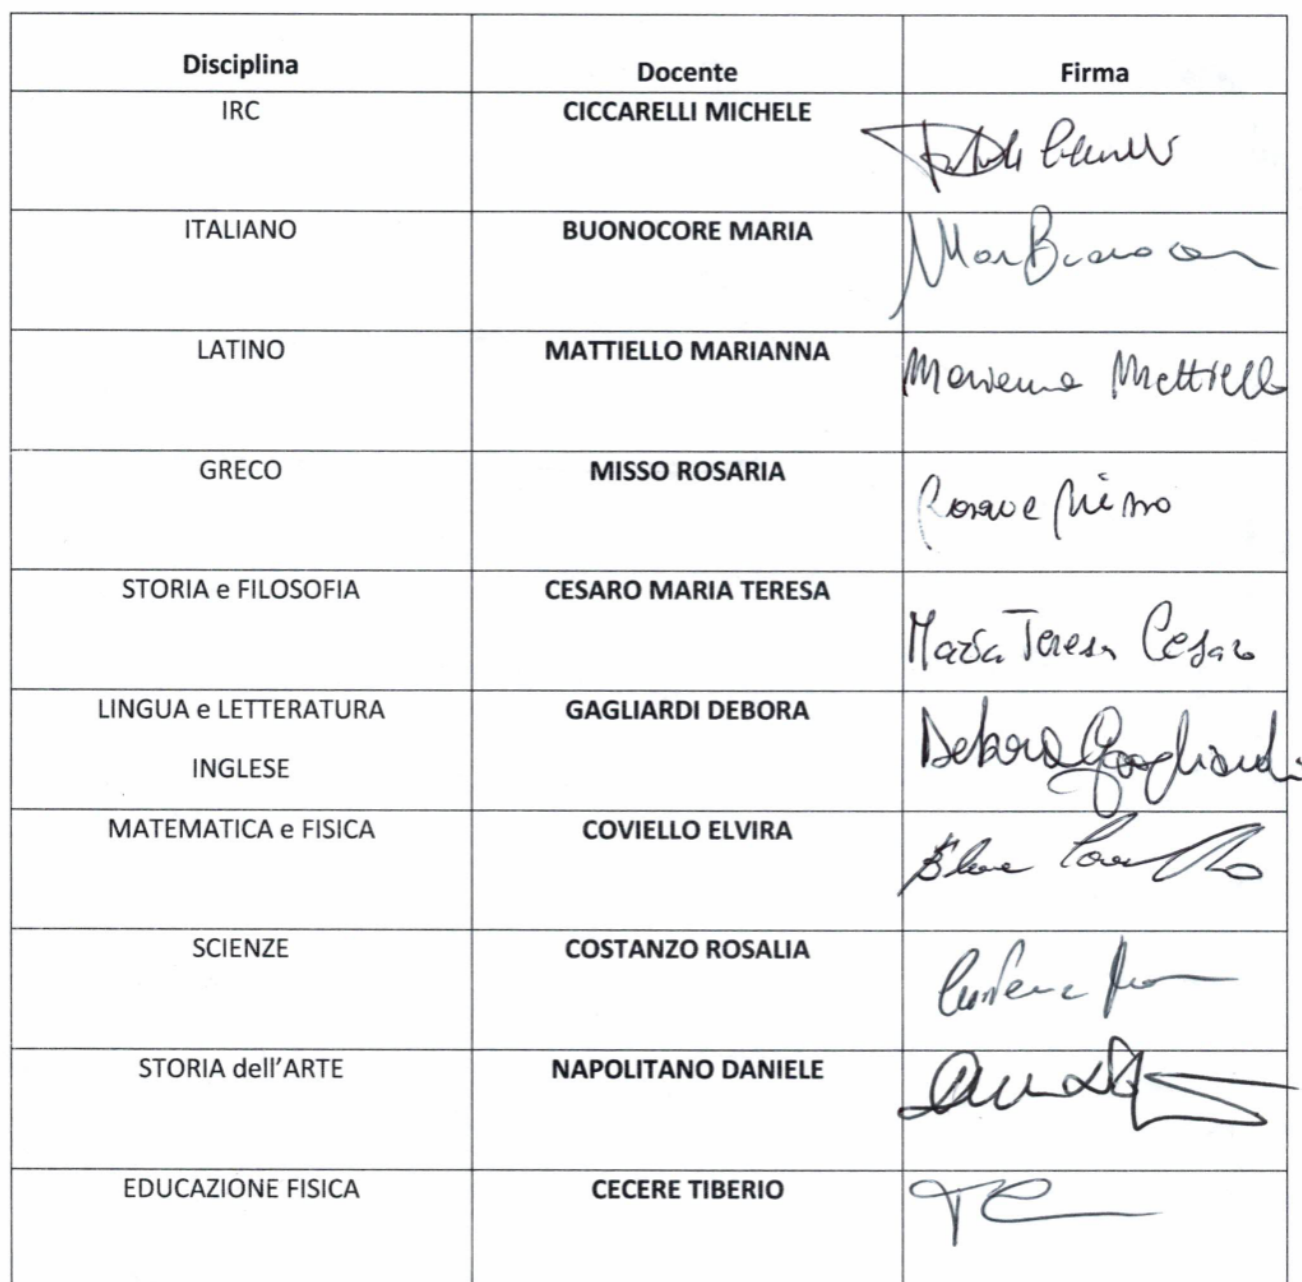 Disciplina Docente Firma
IRC CICCARELLI MICHELE
ITALIANO BUONOCORE MARIA
LATINO MATTIELLO MARIANNA Marianna Mattiello
GRECO MISSO ROSARIA Rosaria Misso
STORIA e FILOSOFIA CESARO MARIA TERESA Maria Teresa Cesaro
LINGUA e LETTERATURA GAGLIARDI DEBORA Debora Gagliardi
INGLESE
MATEMATICA e FISICA COVIELLO ELVIRA
SCIENZE COSTANZO ROSALIA
STORIA dell'ARTE NAPOLITANO DANIELE
EDUCAZIONE FISICA CECERE TIBERIO TC